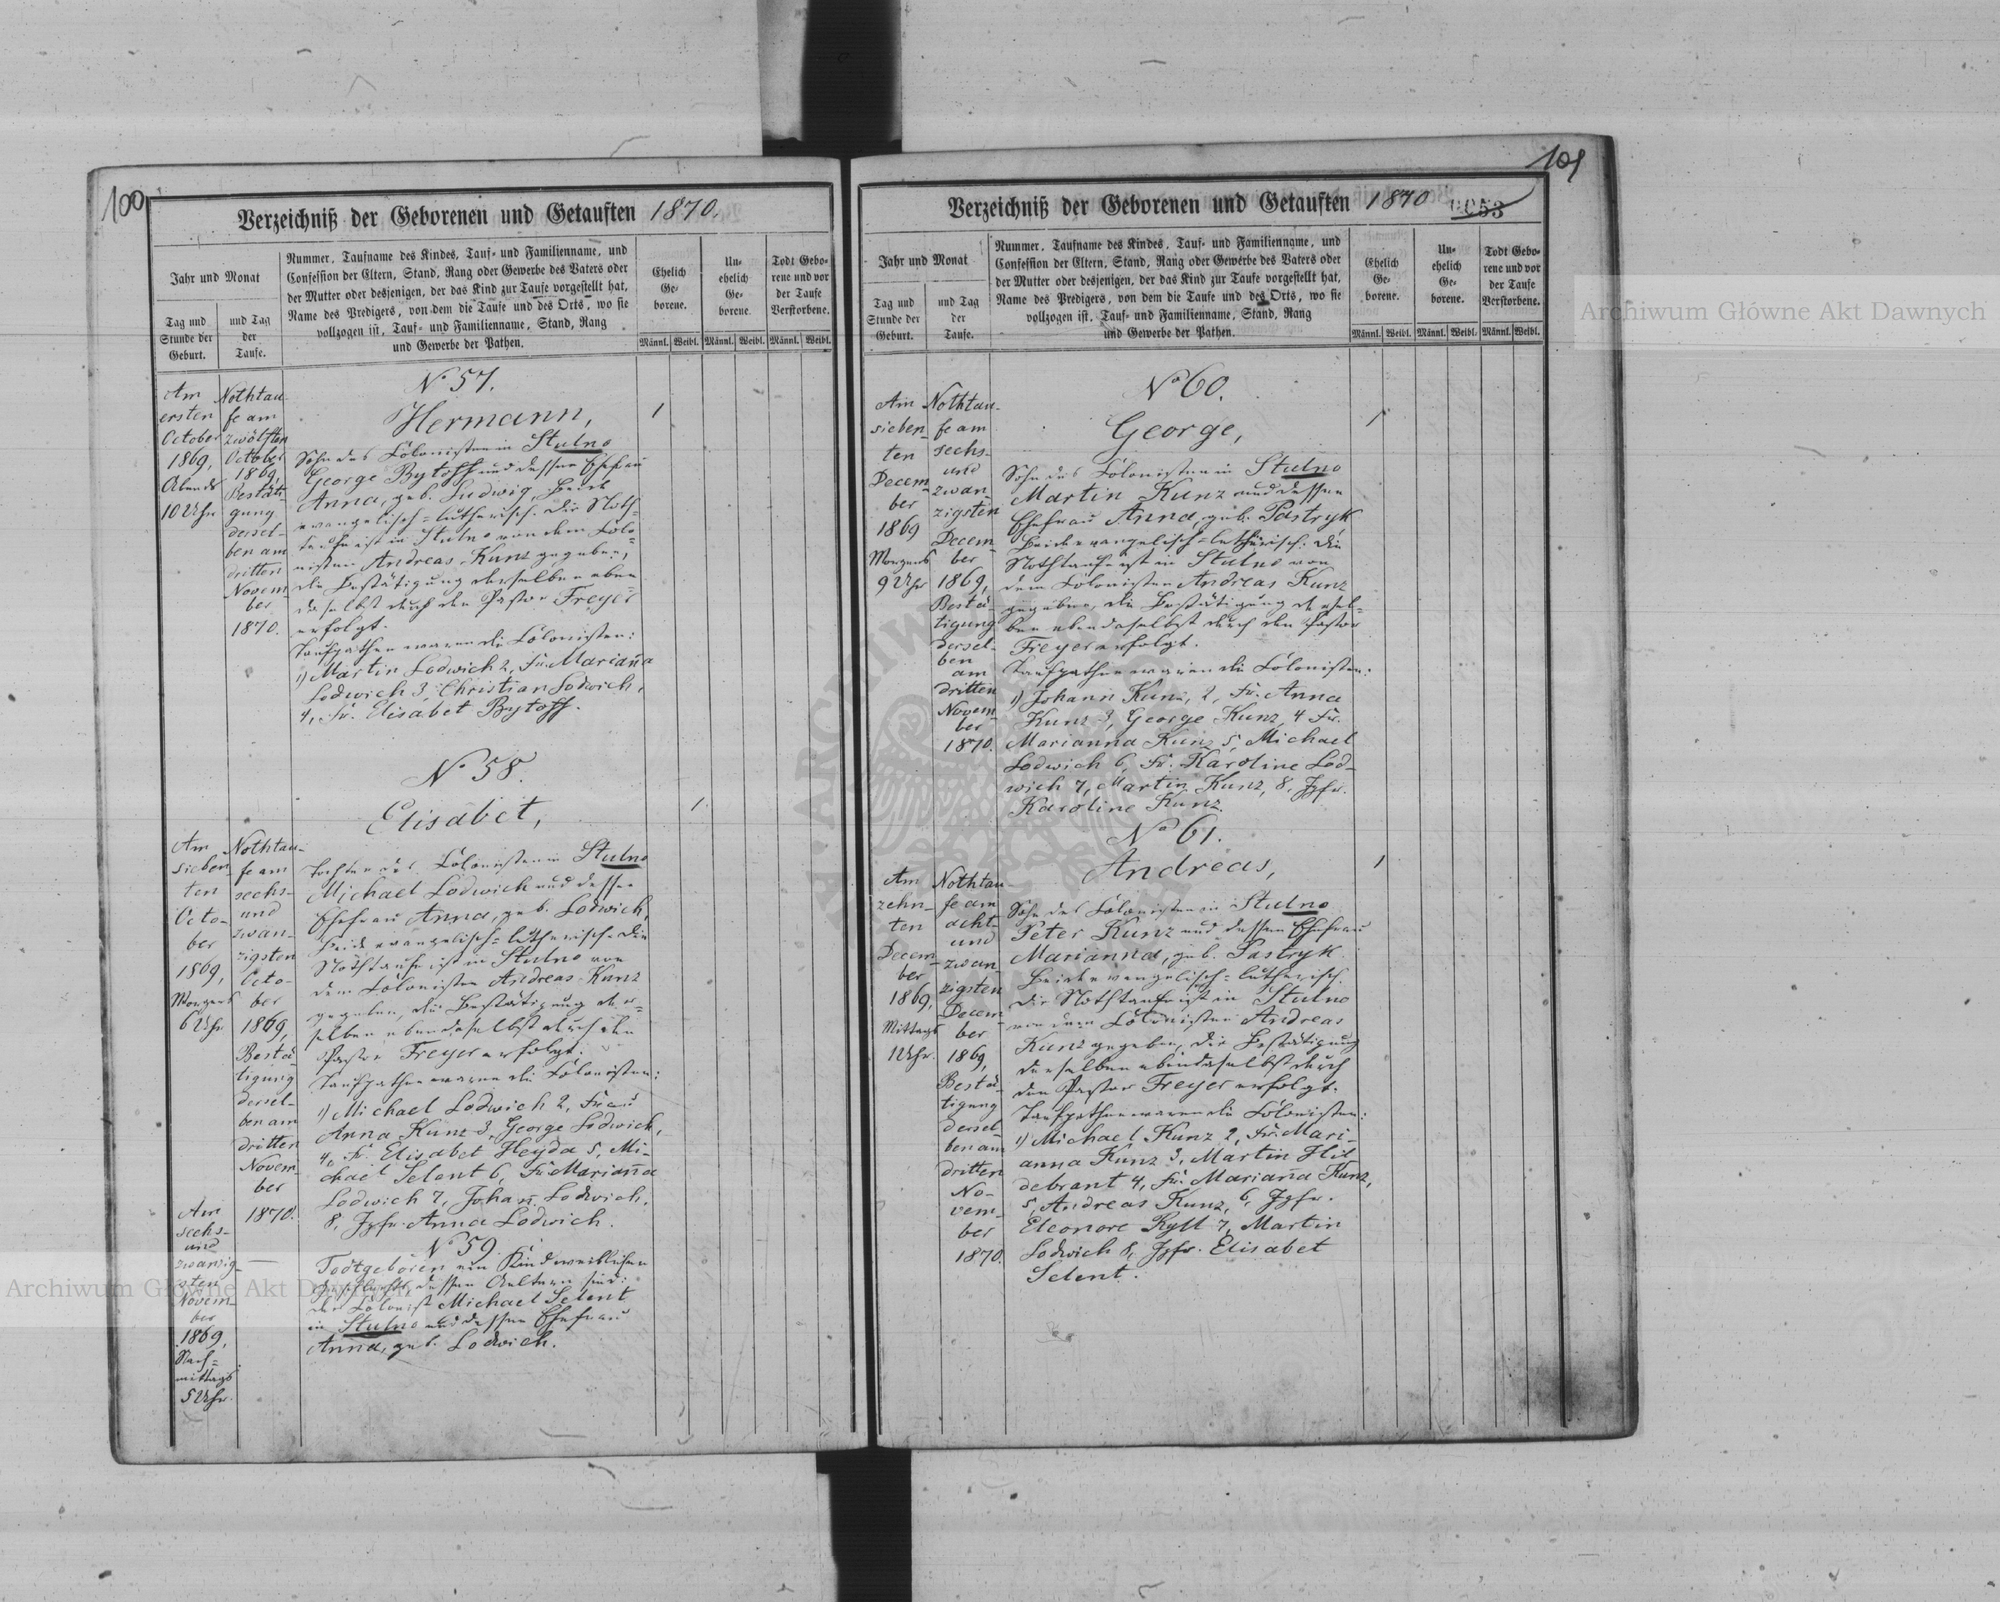 100
Verzeichniß der Geborenen und Getauften 1870.
Jahr und Monat
Tag und Stunde der Geburt.
und Tag der Taufe.
Nummer, Taufname des Kindes, Tauf- und Familienname, und
Confession der Eltern, Stand, Rang oder Gewerbe des Vaters oder
der Mutter oder desjenigen, der das Kind zur Taufe vorgestellt hat,
Name des Predigers, von dem die Taufe und des Orts, wo sie
vollzogen ist, Tauf- und Familienname, Stand, Rang
und Gewerbe der Pathen.
Ehelich Ge- borene.
Un- ehelich Ge- borene.
Todt Gebo- rene und vor der Taufe Verstorbene.
Männl. Weibl. Männl. Weibl. Männl. Weibl.
Am
ersten
October
1869,
Abends
10 Uhr
Nothtau-
fe am
zwölften
October
1869,
Bestäti-
gung
dersel-
ben am
dritten
Novem-
ber
1870.
No 57.
Hermann,
1
Sohn des Colonisten in Stulno
George Bytoff und dessen Ehefrau
Anna, geb. Ludwig, Beide
evangelisch-lutherisch. Die Noth-
taufe ist in Stulno von dem Colo-
nisten Andreas Kunz gegeben,
die Bestätigung derselben eben-
daselbst durch den Pastor Freyer
erfolgt.
Taufpathen waren die Colonisten:
1, Martin Lodwich 2, Fr. Mariana
Lodwich 3, Christian Lodwich,
4, Fr. Elisabet Bytoff.
Am
sieben-
ten
Octo-
ber
1869,
Morgens
6 Uhr
Nothtau-
fe am
sechs-
und
zwan-
zigsten
Octo-
ber
1869,
Bestä-
tigung
dersel-
ben am
dritten
Novem-
ber
1870.
No 58.
Elisabet,
1.
Tochter des Colonisten in Stulno
Michael Lodwich und dessen
Ehefrau Anna, geb. Lodwich,
Beide evangelisch-lutherisch. Die
Nothtaufe ist in Stulno von
dem Colonisten Andreas Kunz
gegeben, die Bestätigung der-
selben ebendaselbst durch den
Pastor Freyer erfolgt.
Taufpathen waren die Colonisten:
1, Michael Lodwich 2, Frau
Anna Kunz 3, George Lodwich,
4, Fr. Elisabet Heyda 5, Mi-
chael Selent 6, Fr. Mariana
Lodwich 7, Johan Lodwich,
8, Jgfr. Anna Lodwich.
Am
sechs-
und
zwanzig-
sten
Novem-
ber
1869,
Nach-
mittags
5 Uhr.
No 59.
Todtgeboren ein Kind weiblichen
Geschlechts, dessen Aeltern sind:
der Colonist Michael Selent
in Stulno und dessen Ehefrau
Anna, geb. Lodwich.
101
Verzeichniß der Geborenen und Getauften 1870
0053
Jahr und Monat
Tag und Stunde der Geburt.
und Tag der Taufe.
Nummer, Taufname des Kindes, Tauf- und Familienname, und
Confession der Eltern, Stand, Rang oder Gewerbe des Vaters oder
der Mutter oder desjenigen, der das Kind zur Taufe vorgestellt hat,
Name des Predigers, von dem die Taufe und des Orts, wo sie
vollzogen ist, Tauf- und Familienname, Stand, Rang
und Gewerbe der Pathen.
Ehelich Ge- borene.
Un- ehelich Ge- borene.
Todt Gebo- rene und vor der Taufe Verstorbene.
Männl. Weibl. Männl. Weibl. Männl. Weibl.
Am
sieben-
ten
Decem-
ber
1869
Morgens
9 Uhr
Nothtau-
fe am
sechs-
und
zwan-
zigsten
Decem-
ber
1869,
Bestä-
tigung
dersel-
ben
am
dritten
Novem-
ber
1870.
No 60.
George,
1
Sohn des Colonisten in Stulno
Martin Kunz und dessen
Ehefrau Anna, geb. Pastryk
Beide evangelisch-lutherisch. Die
Nothtaufe ist in Stulno von
dem Colonisten Andreas Kunz
gegeben, die Bestätigung dersel-
ben ebendaselbst durch den Pastor
Freyer erfolgt.
Taufpathen waren die Colonisten:
1, Johann Kunz, 2, Fr. Anna
Kunz 3, George Kunz, 4 Fr.
Marianna Kunz 5, Michael
Lodwich 6, Fr. Karoline Lod-
wich 7, Martin Kunz, 8, Jgfr.
Karoline Kunz.
Am
zehn-
ten
Decem-
ber
1869,
Mittags
1 Uhr.
Nothtau-
fe am
acht-
und
zwan-
zigsten
Decem-
ber
1869,
Bestä-
tigung
dersel-
ben am
dritten
No-
vem-
ber
1870.
No 61.
Andreas,
1
Sohn des Colonisten in Stulno
Peter Kunz und dessen Ehefrau
Marianna, geb. Pastryk
Beide evangelisch-lutherisch.
Die Nothtaufe ist in Stulno
von dem Colonisten Andreas
Kunz gegeben, die Bestätigung
derselben ebendaselbst durch
den Pastor Freyer erfolgt.
Taufpathen waren die Colonisten:
1, Michael Kunz 2, Fr. Mari-
anna Kunz 3, Martin Hil-
debrant 4, Fr. Mariana Kunz,
5, Andreas Kunz, 6, Jgfr.
Eleonore Ryll 7, Martin
Lodwich 8, Jgfr. Elisabet
Selent.
Archiwum Główne Akt Dawnych
Archiwum Główne Akt Dawnych